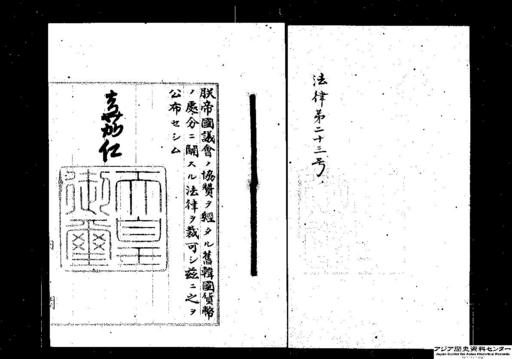 法律第二十三号
朕帝國議會ノ協賛ヲ經タル舊韓國貨幣
ノ處分ニ關スル法律ヲ裁可シ茲ニ之ヲ
公布セシム
嘉仁
天皇御璽
アジア歴史資料センター
Japan Center for Asian Historical Records